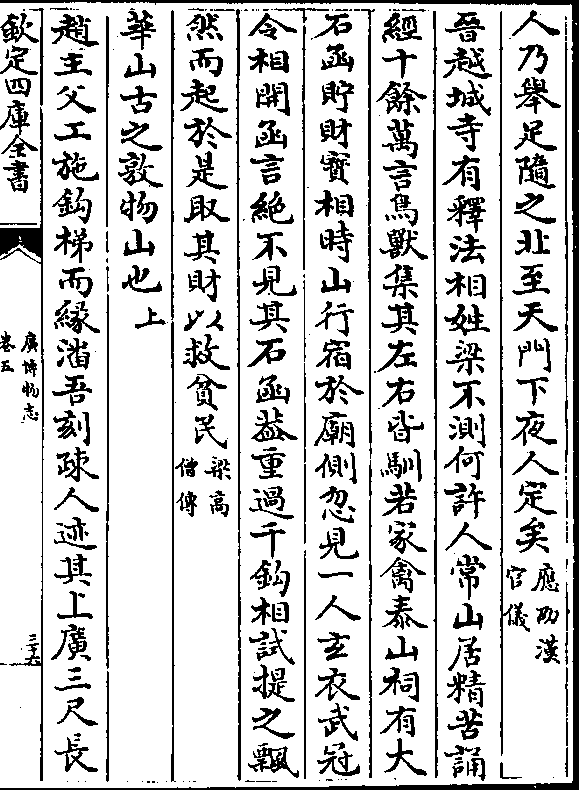 人乃舉足隨之北至天門下夜人定矣應劭漢官儀
晉越城寺有釋法相姓梁不測何許人常山居精苦誦
經十餘萬言鳥獸集其左右皆馴若家禽泰山祠有大
石函貯財寶相時山行宿於廟側忽見一人玄衣武冠
令相開函言絶不見其石函葢重過千鈞相試提之飄
然而起於是取其財以救貧民梁高僧傳
華山古之敦物山也上
趙主父工施鈎梯而緣潘吾刻疎人迹其上廣三尺長
欽定四庫全書
廣博物志
卷五
三十六